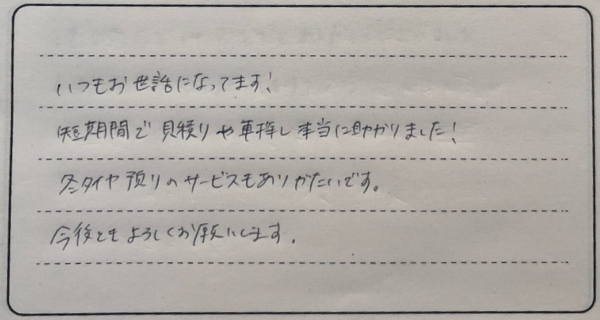 いつもお世話になってます!
短期間で見積りや車探し本当に助かりました!
冬タイヤ預りのサービスもありがたいです。
今後ともよろしくお願いします.